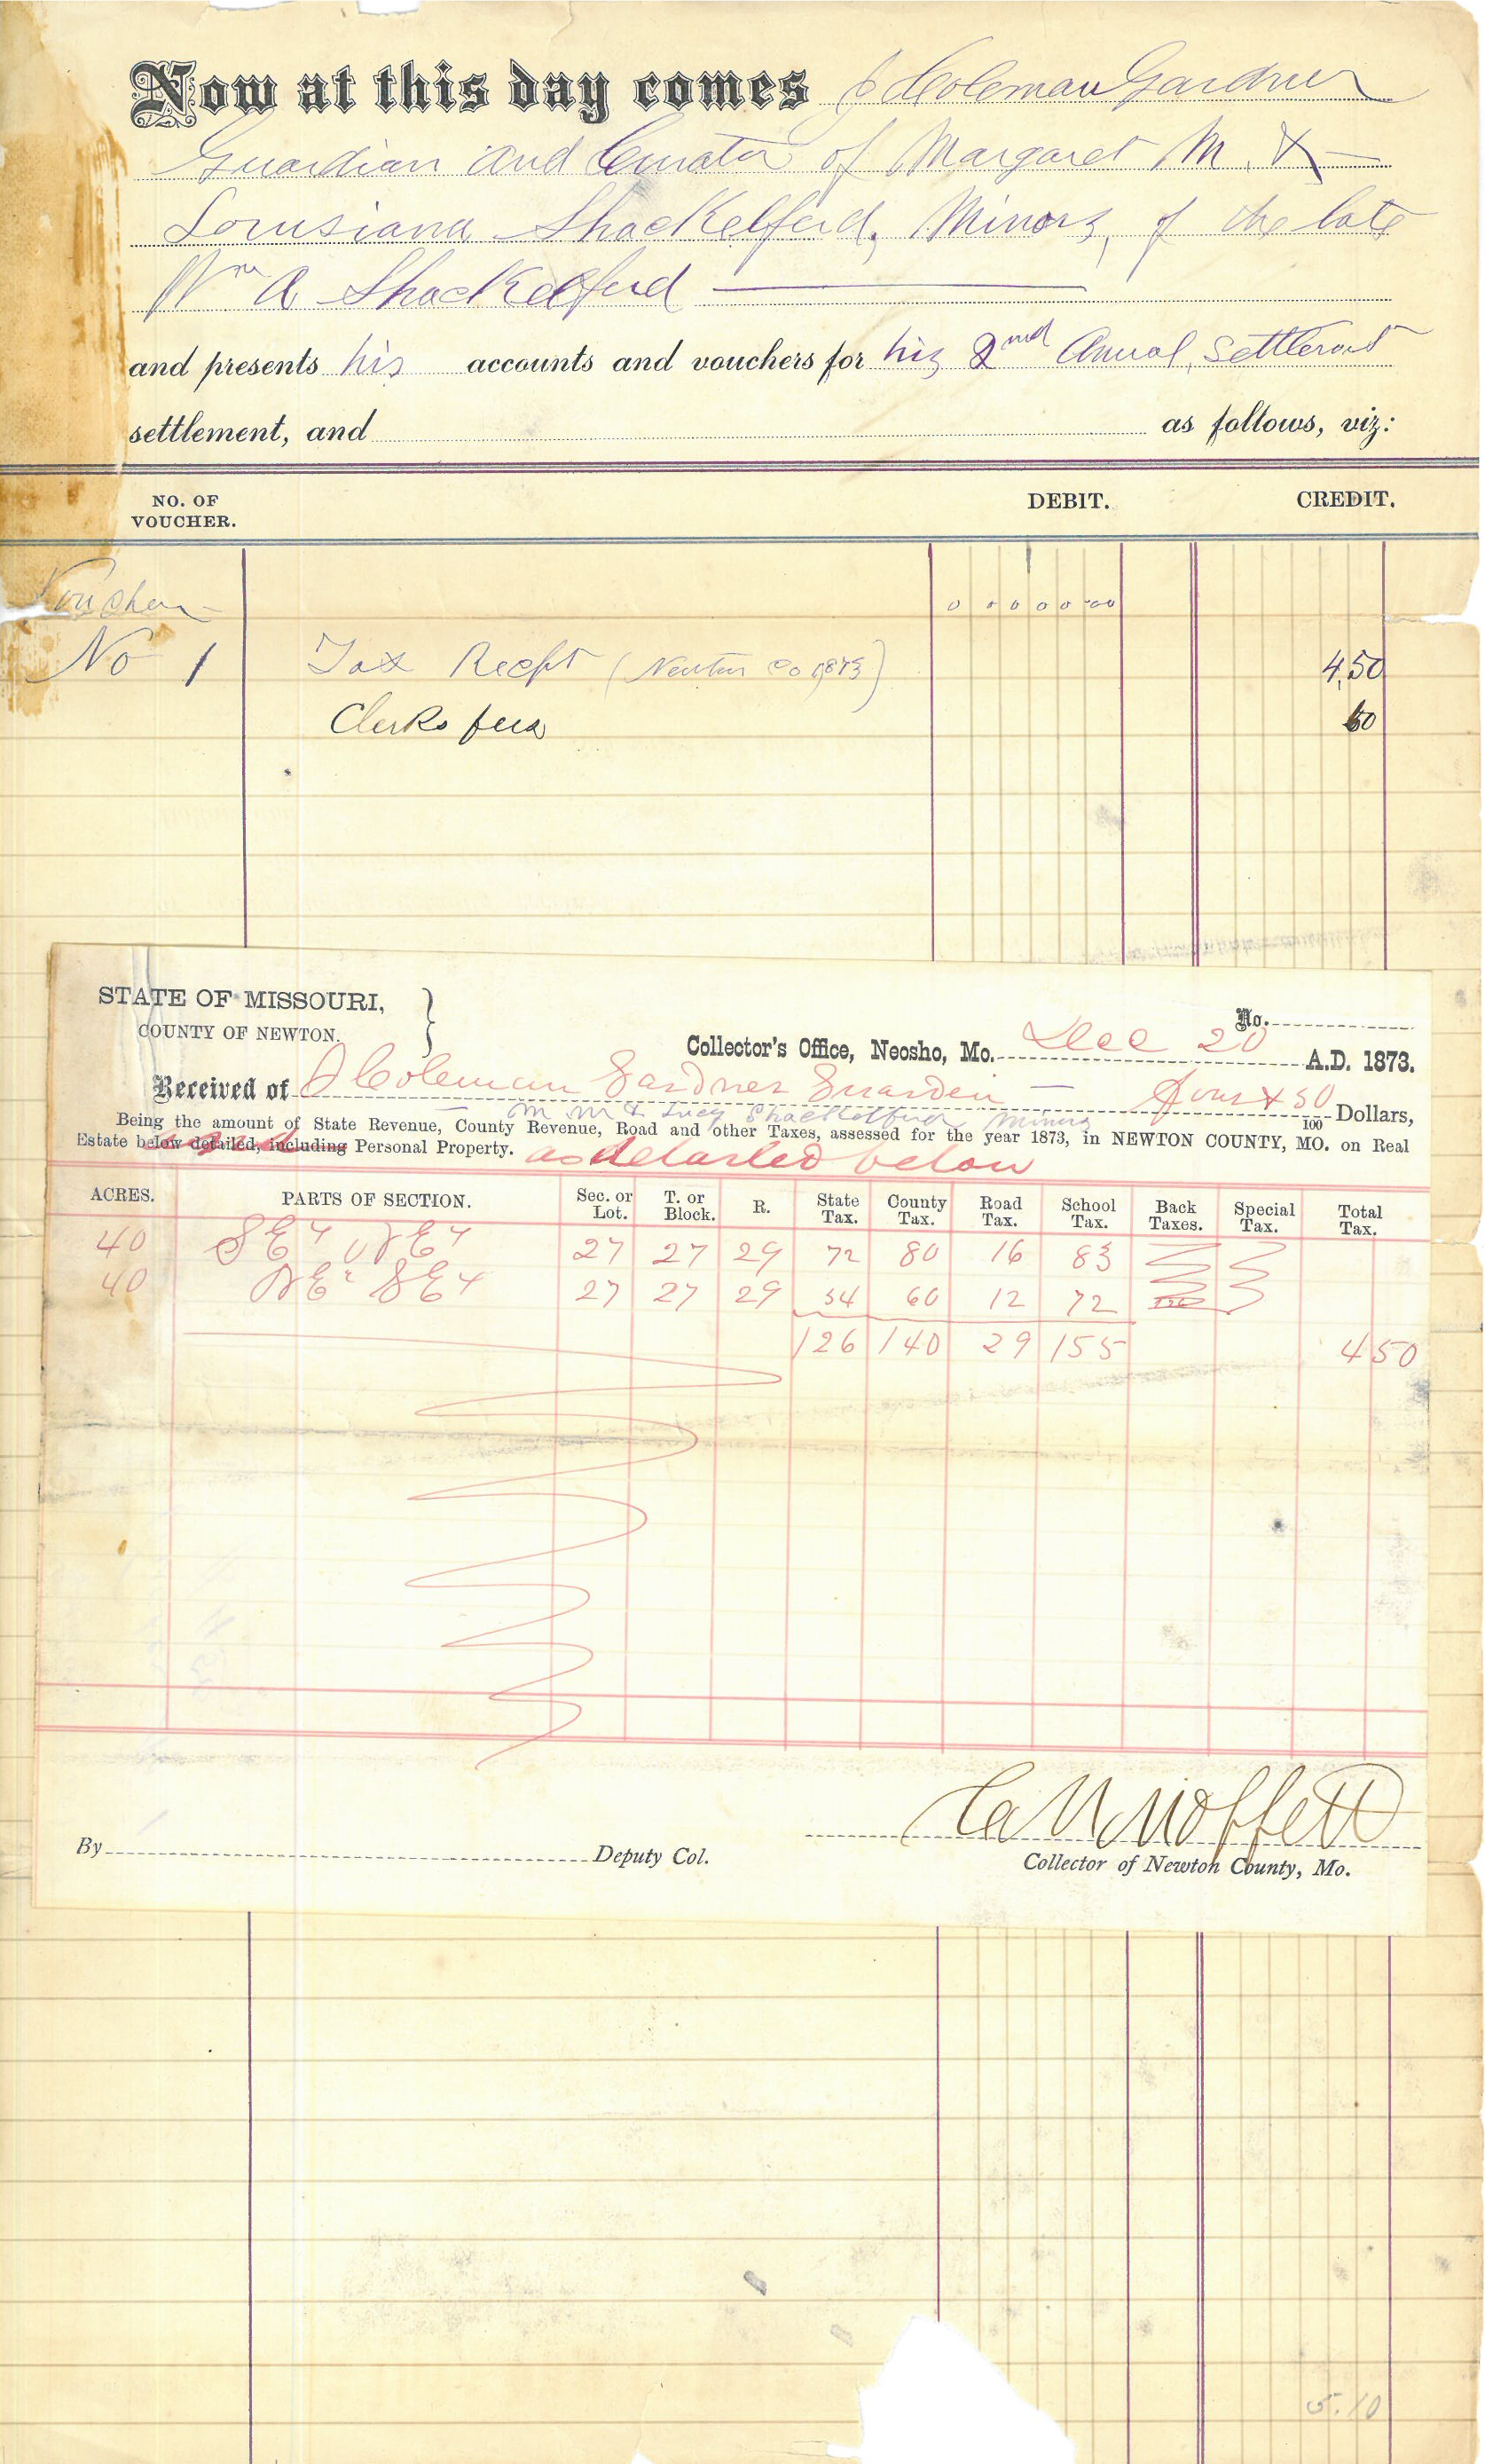 Now at this day comes J Coleman Gardner
Guardian and Curator of Margaret M. &
Louisiana Shackelford, Minors, of the late
Wm A Shackelford
and presents his accounts and vouchers for his 2nd Anual Settlement
settlement, and as follows, viz:
NO. OF VOUCHER. DEBIT. CREDIT.
Voucher 0 0 0 0 0 00
No 1 Tax Recpt (Newton Co 1873) 4,50
Clerks fees 60
STATE OF MISSOURI,
COUNTY OF NEWTON. }
No.
Collector's Office, Neosho, Mo. Dec 20 A.D. 1873.
Received of J Coleman Gardner Guardein — Four & 50/100 Dollars,
M M & Lucy Shackelford Minors
Being the amount of State Revenue, County Revenue, Road and other Taxes, assessed for the year 1873, in NEWTON COUNTY, MO. on Real
Estate below detailed, including Personal Property. as detailed below
ACRES. PARTS OF SECTION. Sec. or Lot. T. or Block. R. State Tax. County Tax. Road Tax. School Tax. Back Taxes. Special Tax. Total Tax.
40 SE4 NE4 27 27 29 72 80 16 83
40 NE4 SE4 27 27 29 54 60 12 72
126 140 29 155 450
By Deputy Col.
Moffett
Collector of Newton County, Mo.
5.10